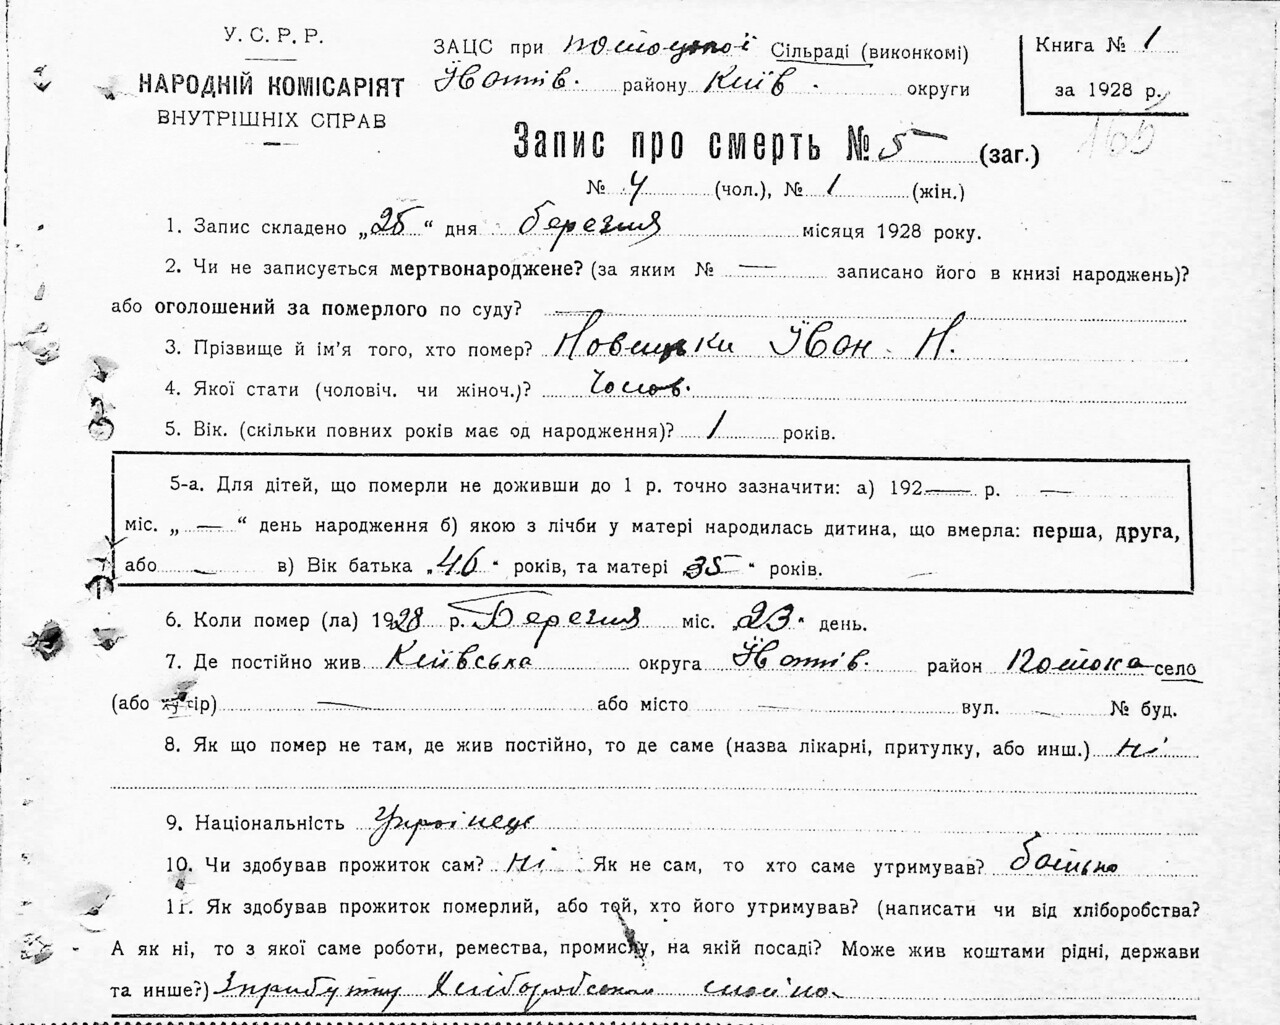 У. С. Р. Р.
НАРОДНІЙ КОМІСАРІЯТ
ВНУТРІШНІХ СПРАВ
ЗАЦС при Сільраді (виконкомі)
району Київ. округи
Книга № 1
за 1928 р.
165
Запис про смерть № 5 (заг.)
№ 4 (чол.), № 1 (жін.)
1. Запис складено „25“ дня березня місяця 1928 року.
2. Чи не записується мертвонароджене? (за яким № — записано його в книзі народжень)?
або оголошений за померлого по суду? —
3. Прізвище й ім'я того, хто помер? Новицьки Іван Н.
4. Якої стати (чоловіч. чи жіноч.)? Чолов.
5. Вік. (скільки повних років має од народження)? 1 років.
5-а. Для дітей, що померли не доживши до 1 р. точно зазначити: а) 192 — р. —
міс. „ — “ день народження б) якою з лічби у матері народилась дитина, що вмерла: перша, друга,
або — в) Вік батька „46“ років, та матері „35“ років.
6. Коли помер (ла) 1928 р. Березня міс. „23“ день.
7. Де постійно жив Київська округа район село
(або хутір) — або місто — вул. — № буд.
8. Як що помер не там, де жив постійно, то де саме (назва лікарні, притулку, або инш.) ні
9. Національність Українець
10. Чи здобував прожиток сам? ні Як не сам, то хто саме утримував? батько
11. Як здобував прожиток померлий, або той, хто його утримував? (написати чи від хліборобства?
А як ні, то з якої саме роботи, ремества, промислу, на якій посаді? Може жив коштами рідні, держави
та инше?) Зприбутку